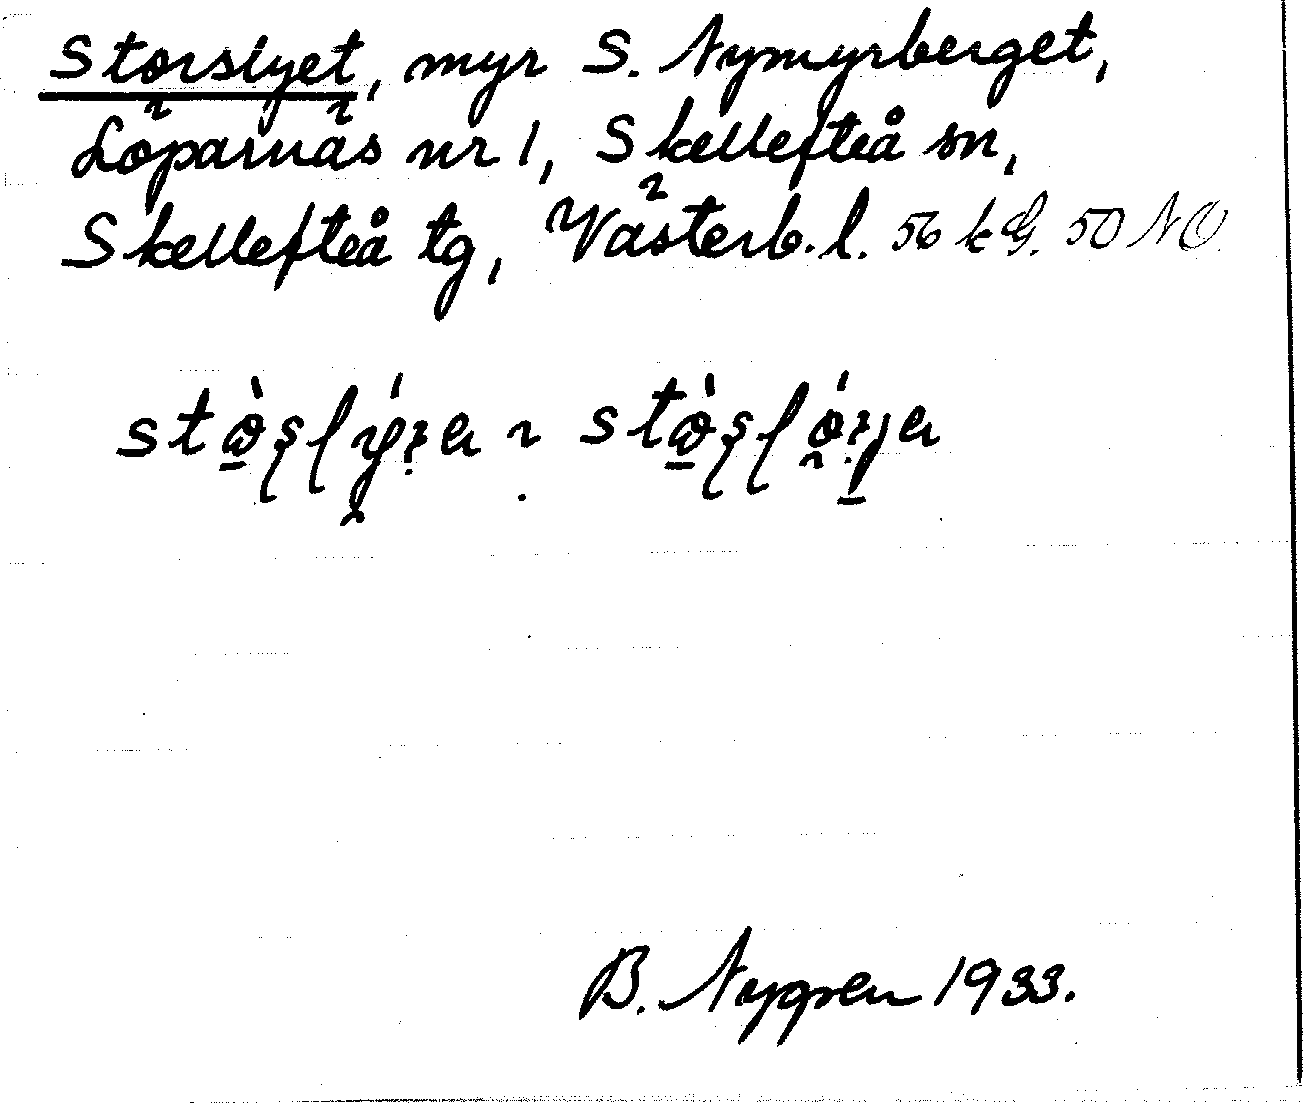 Storslyet, myr S. Nymyrberget,
Löparnäs nr 1, Skellefteå sn,
Skellefteå tg, Västerb. l. 56 k G. 50 NO
B. Nygren 1933.